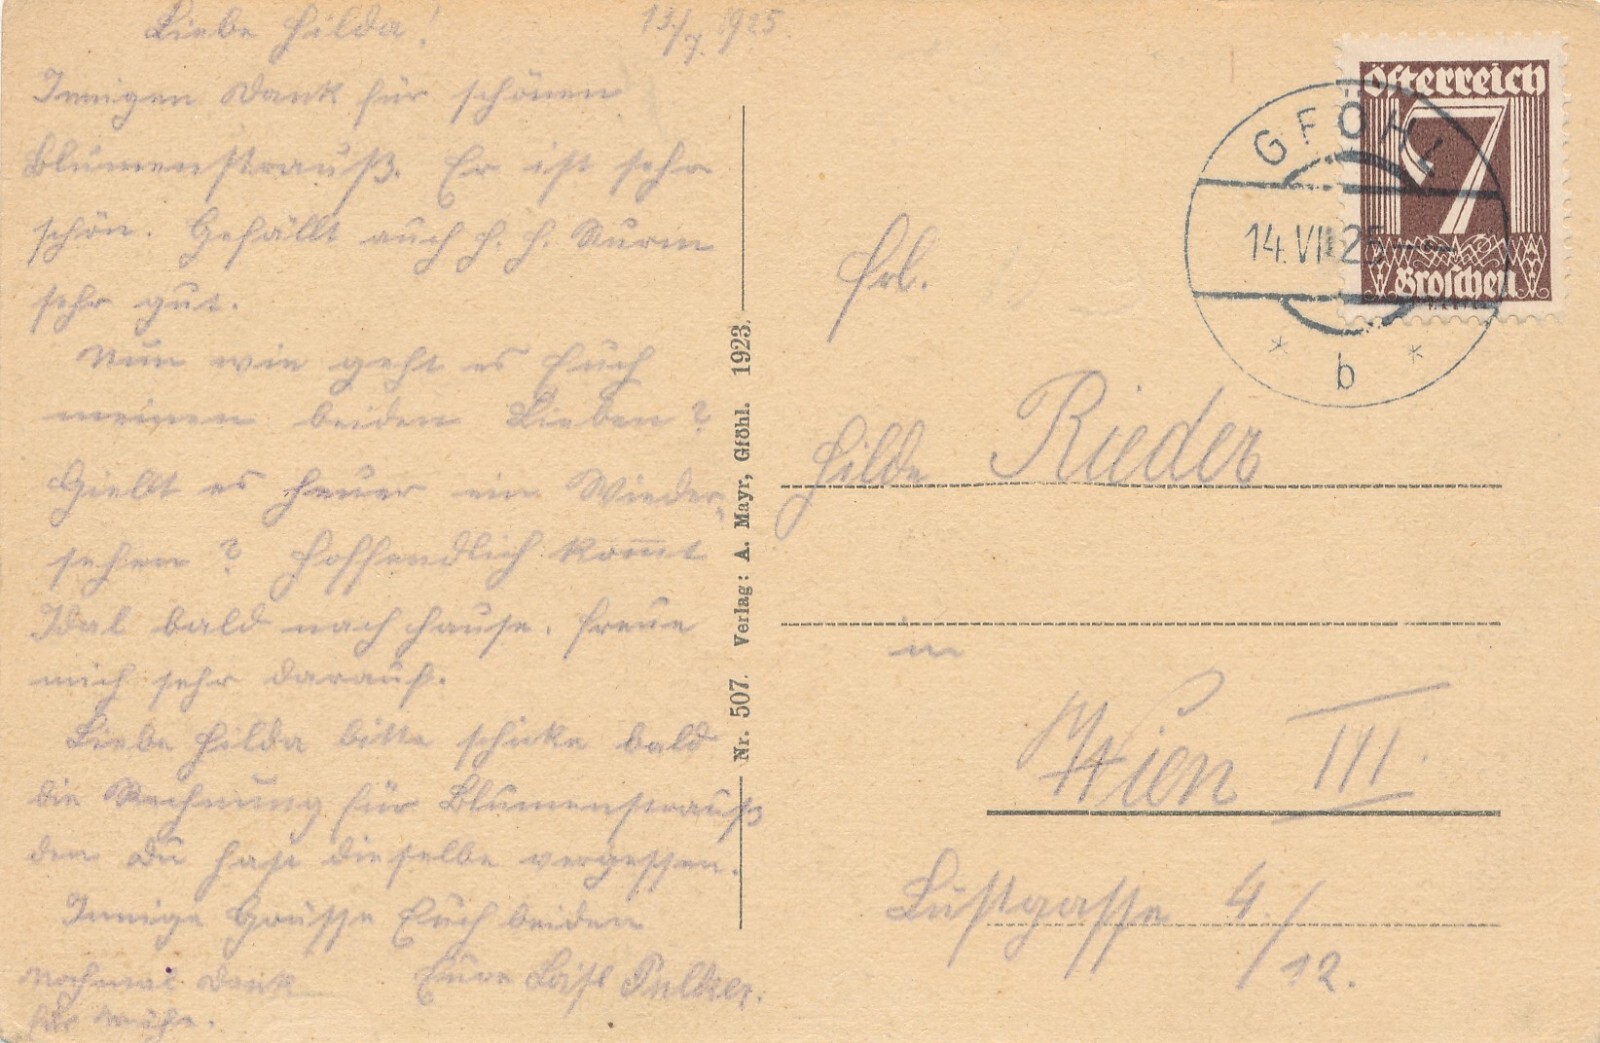 Liebe Hilda! 13./7. 1925.
Innigen Dank für schönen
Blumenstrauß. Er ist sehr
schön. Gefällt auch h. h. 
sehr gut.
Nun wie geht es Euch
meinen beiden Lieben?
Giebt es heuer ein Wieder-
sehen? Hoffendlich kommt
Idal bald nach hause. Freue
mich sehr darauf.
Liebe Hilda bitte schicke bald
die Rechnung für Blumenstrauß
den Du hast dieselbe vergessen.
Innige Grüsse Euch beiden
Nochmal Dank Eure
für Mühe.
Nr. 507. Verlag: A. Mayr, Gföhl. 1923.
Österreich
7
Groschen
GFÖHL
14.VII.25
* b *
Frl.
Hilde Rieder
in
Wien III.
Lustgasse 4./
12.